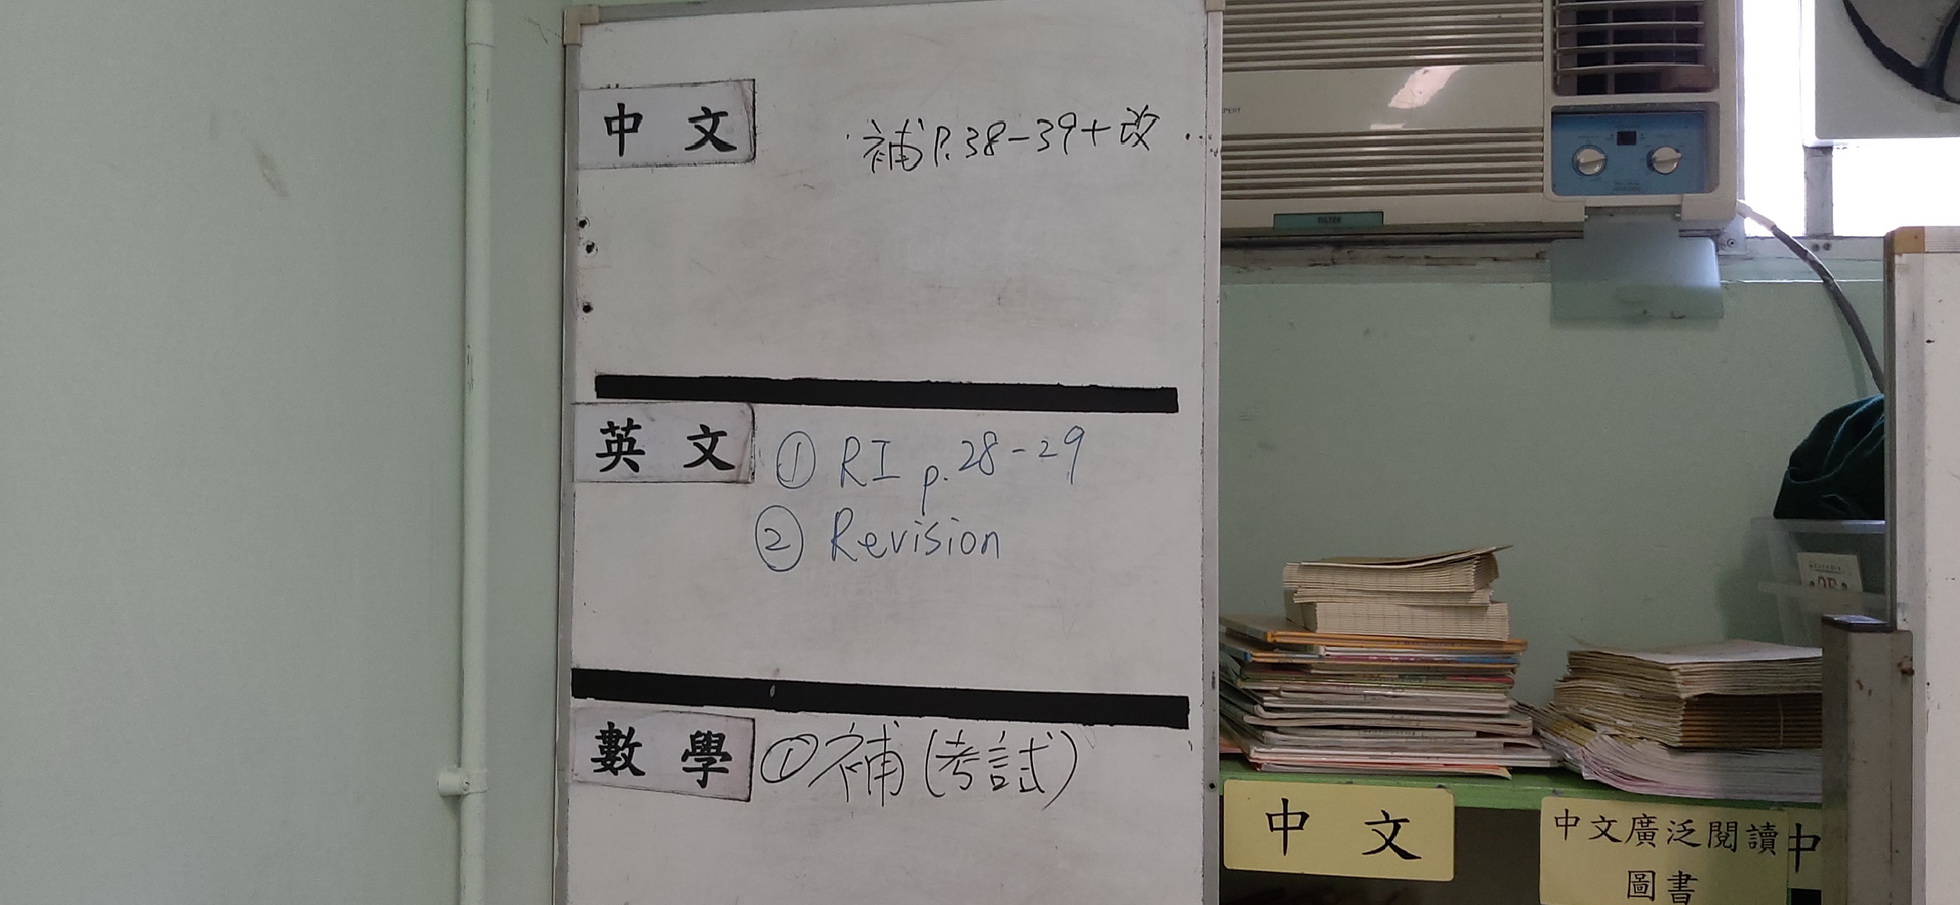 中文
補P.38-39+改
英文
① RI p.28-29
② Revision
數學
①補(考試)
FILTER
中文
中文廣泛閱讀
圖書
中